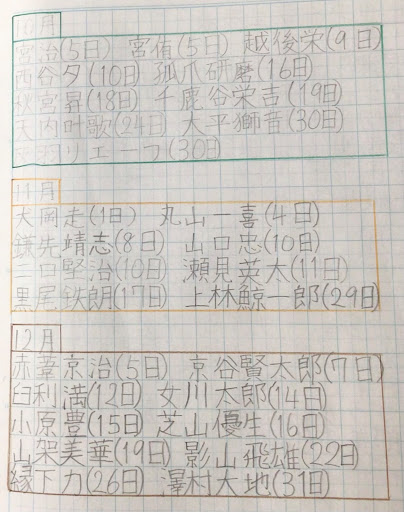 10月
宮治(5日) 宮侑(5日) 越後栄(9日)
西谷夕(10日) 孤爪研磨(16日)
秋宮昇(18日) 千鹿谷栄吉(19日)
天内叶歌(24日) 大平獅音(30日)
リエーフ(30日)
11月
犬岡走(1日) 丸山一喜(4日)
鎌先靖志(8日) 山口忠(10日)
二口堅治(10日) 瀬見英太(11日)
黒尾鉄朗(17日) 上林鯨一郎(29日)
12月
赤葦京治(5日) 京谷賢太郎(7日)
臼利満(12日) 女川太郎(14日)
小原豊(15日) 芝山優生(16日)
山架美華(19日) 影山飛雄(22日)
縁下力(26日) 澤村大地(31日)